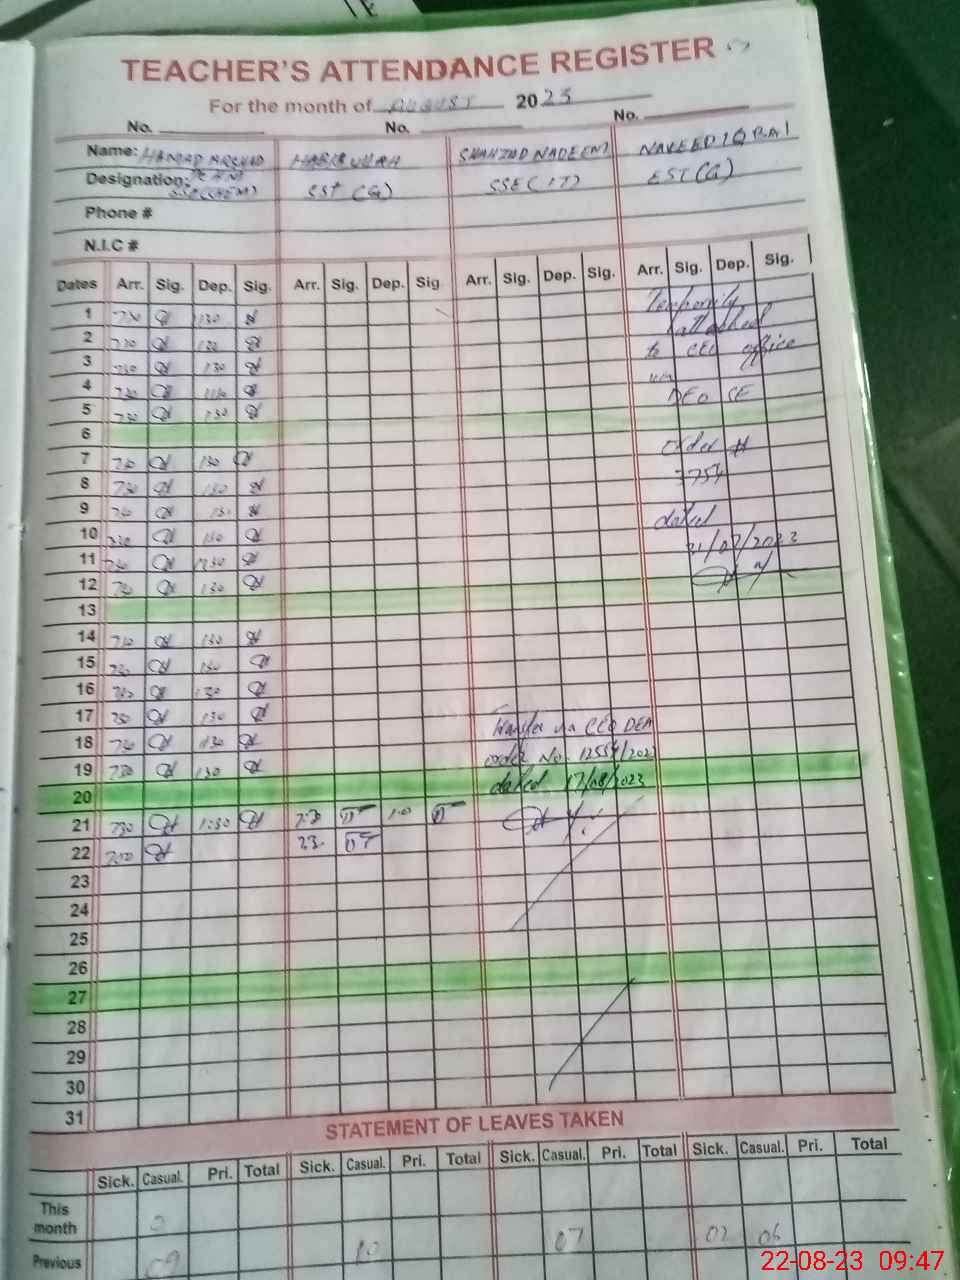 TEACHER'S ATTENDANCE REGISTER
For the month of AUGUST 2023
No. No. No.
Name: HABIB ULLAH SHAHZAD NADEEM NAVEED IQBAL
Designation: SSE(CHEM) SST (G) SSE (IT) EST(G)
Phone #
N.I.C #
Dates Arr. Sig. Dep. Sig. Arr. Sig. Dep. Sig Arr. Sig. Dep. Sig. Arr. Sig. Dep. Sig.
1 730 130
Temporily
attached
2 730 130
3 730 130 to CEO office
4 730 130 via
DEO SE
5 730 130
6
7 730 130 order #
8 730 130 3754
9 730 130
10 730 130 dated
11 730 130 21/07/2023
12 730 130
13
14 730 130
15 730 130
16 730 130
17 730 130
18 730 130 Transfer via CEO DEA
19 730 130 order No. 12554/2023
20 dated 17/08/2023
21 730 1:30
22
23
24
25
26
27
28
29
30
31
STATEMENT OF LEAVES TAKEN
Sick. Casual. Pri. Total Sick. Casual. Pri. Total Sick. Casual. Pri. Total Sick. Casual. Pri. Total
This
month
Previous 09 10 07 02 06
22-08-23 09:47